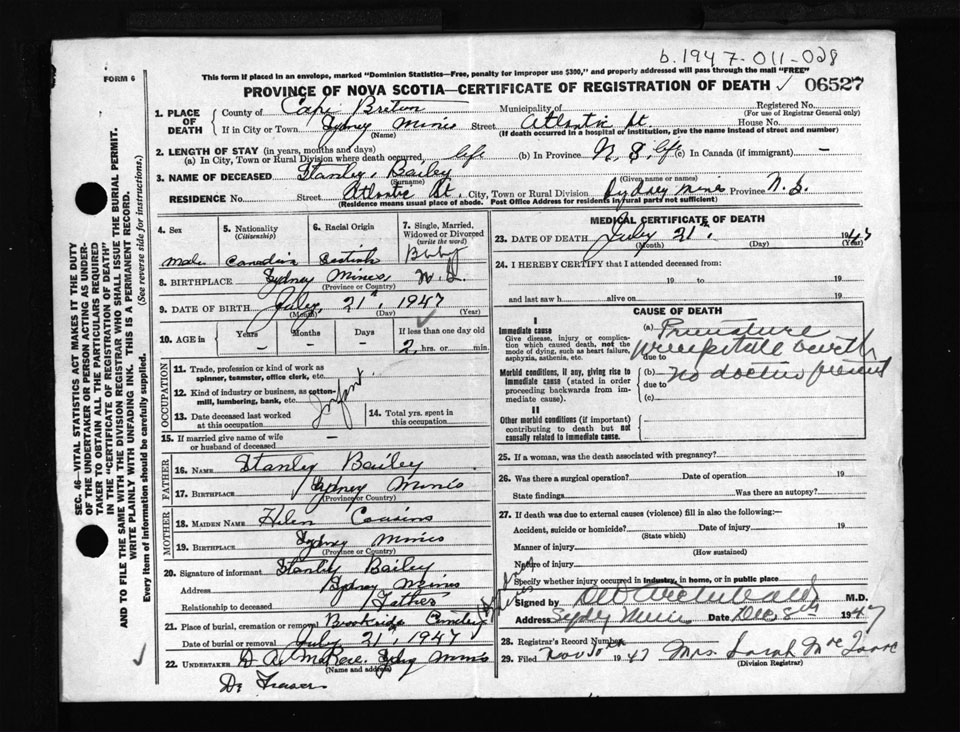 b. 1947-011-028
FORM 6
This form if placed in an envelope, marked "Dominion Statistics—Free, penalty for improper use $300," and properly addressed will pass through the mail "FREE"
PROVINCE OF NOVA SCOTIA—CERTIFICATE OF REGISTRATION OF DEATH ✓ 06527
SEC. 46—VITAL STATISTICS ACT MAKES IT THE DUTY
OF THE UNDERTAKER OR PERSON ACTING AS UNDER-
TAKER TO OBTAIN ALL THE PARTICULARS REQUIRED
IN THE "CERTIFICATE OF REGISTRATION OF DEATH"
AND TO FILE THE SAME WITH THE DIVISION REGISTRAR WHO SHALL ISSUE THE BURIAL PERMIT.
WRITE PLAINLY WITH UNFADING INK. THIS IS A PERMANENT RECORD.
Every item of Information should be carefully supplied. (See reverse side for instructions.)
1. PLACE OF DEATH
County of Cape Breton Municipality of Registered No.
(For use of Registrar General only)
If in City or Town Sydney Mines Street Atlantic St. House No.
(Name) (If death occurred in a hospital or institution, give the name instead of street and number)
2. LENGTH OF STAY (in years, months and days)
(a) In City, Town or Rural Division where death occurred, life (b) In Province N. S. life (c) In Canada (if immigrant) —
3. NAME OF DECEASED Stanley Bailey
(Surname) (Given name or names)
RESIDENCE No. Street Atlantic St. City, Town or Rural Division Sydney Mines Province N. S.
(Residence means usual place of abode. Post Office Address for residents in rural parts not usual)
4. Sex Male
5. Nationality (Citizenship) Canadian
6. Racial Origin Scotish
7. Single, Married, Widowed or Divorced (write the word) Baby
8. BIRTHPLACE Sydney Mines N. S.
(Province or Country)
9. DATE OF BIRTH July 21st 1947
(Month) (Day) (Year)
10. AGE in Years — Months — Days — If less than one day old 2 hrs. or min.
OCCUPATION
11. Trade, profession or kind of work as spinner, teamster, office clerk, etc.
12. Kind of industry or business, as cotton-mill, lumbering, bank, etc. Infant
13. Date deceased last worked at this occupation
14. Total yrs. spent in this occupation
15. If married give name of wife or husband of deceased —
FATHER
16. NAME Stanley Bailey
17. BIRTHPLACE Sydney Mines
(Province or Country)
MOTHER
18. MAIDEN NAME Helen Cousins
19. BIRTHPLACE Sydney Mines
(Province or Country)
20. Signature of informant Stanley Bailey
Address Sydney Mines
Relationship to deceased Father
21. Place of burial, cremation or removal Brookside Cemetery
Date of burial or removal July 21st 1947
22. UNDERTAKER D. A. Sydney Mines
(Name and address)
MEDICAL CERTIFICATE OF DEATH
23. DATE OF DEATH July 21st 1947
(Month) (Day) (Year)
24. I HEREBY CERTIFY that I attended deceased from:
19 to 19
and last saw h alive on 19
CAUSE OF DEATH
I
Immediate cause
Give disease, injury or complication which caused death, not the mode of dying, such as heart failure, asphyxia, asthenia, etc.
(a) Premature
due to birth
Morbid conditions, if any, giving rise to immediate cause (stated in order proceeding backwards from immediate cause).
(b) No doctor present
due to
(c)
II
Other morbid conditions (if important) contributing to death but not causally related to immediate cause.
25. If a woman, was the death associated with pregnancy?
26. Was there a surgical operation? Date of operation 19
State findings Was there an autopsy?
27. If death was due to external causes (violence) fill in also the following:—
Accident, suicide or homicide? Date of injury 19
(State which)
Manner of injury
(How sustained)
Nature of injury
Specify whether injury occurred in industry, in home, or in public place
Signed by M.D.
Address Sydney Mines Date Dec 8th 1947
28. Registrar's Record Number
29. Filed Nov 1947 Mrs. Sarah
(Division Registrar)